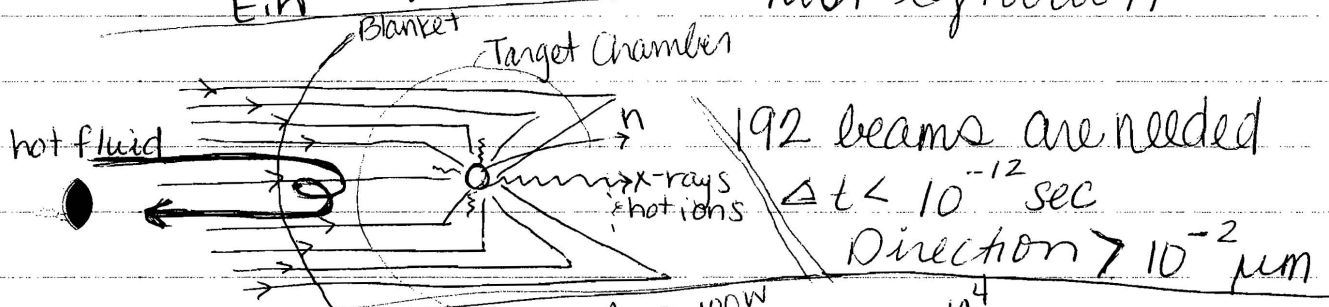 Blanket
Target Chamber
hot fluid
n
x-rays
hot ions
192 beams are needed
Δt < 10⁻¹² sec
Direction > 10⁻² μm